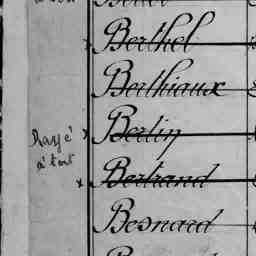 Berthel
Berthiaux
Rayé
à tort
Bertin
x Bertrand
Besnard